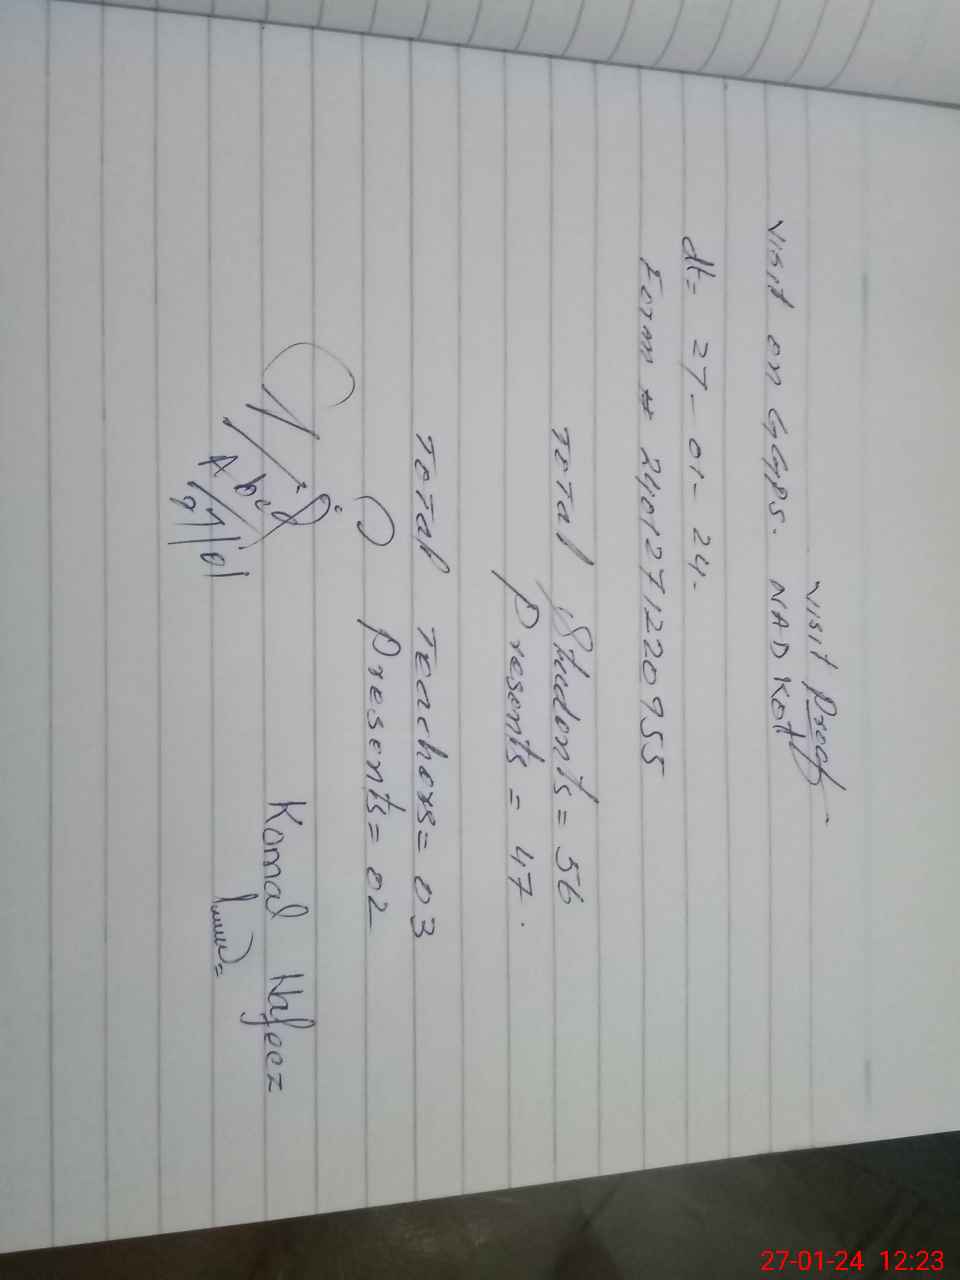 Visit Proof
Visit on GGPS. NAD Kot
dt= 27-01-24.
Form # 2401271220955
Total Students = 56
Presents = 47.
Total Teachers = 03
Presents = 02
Komal Hafeez
27-01-24 12:23